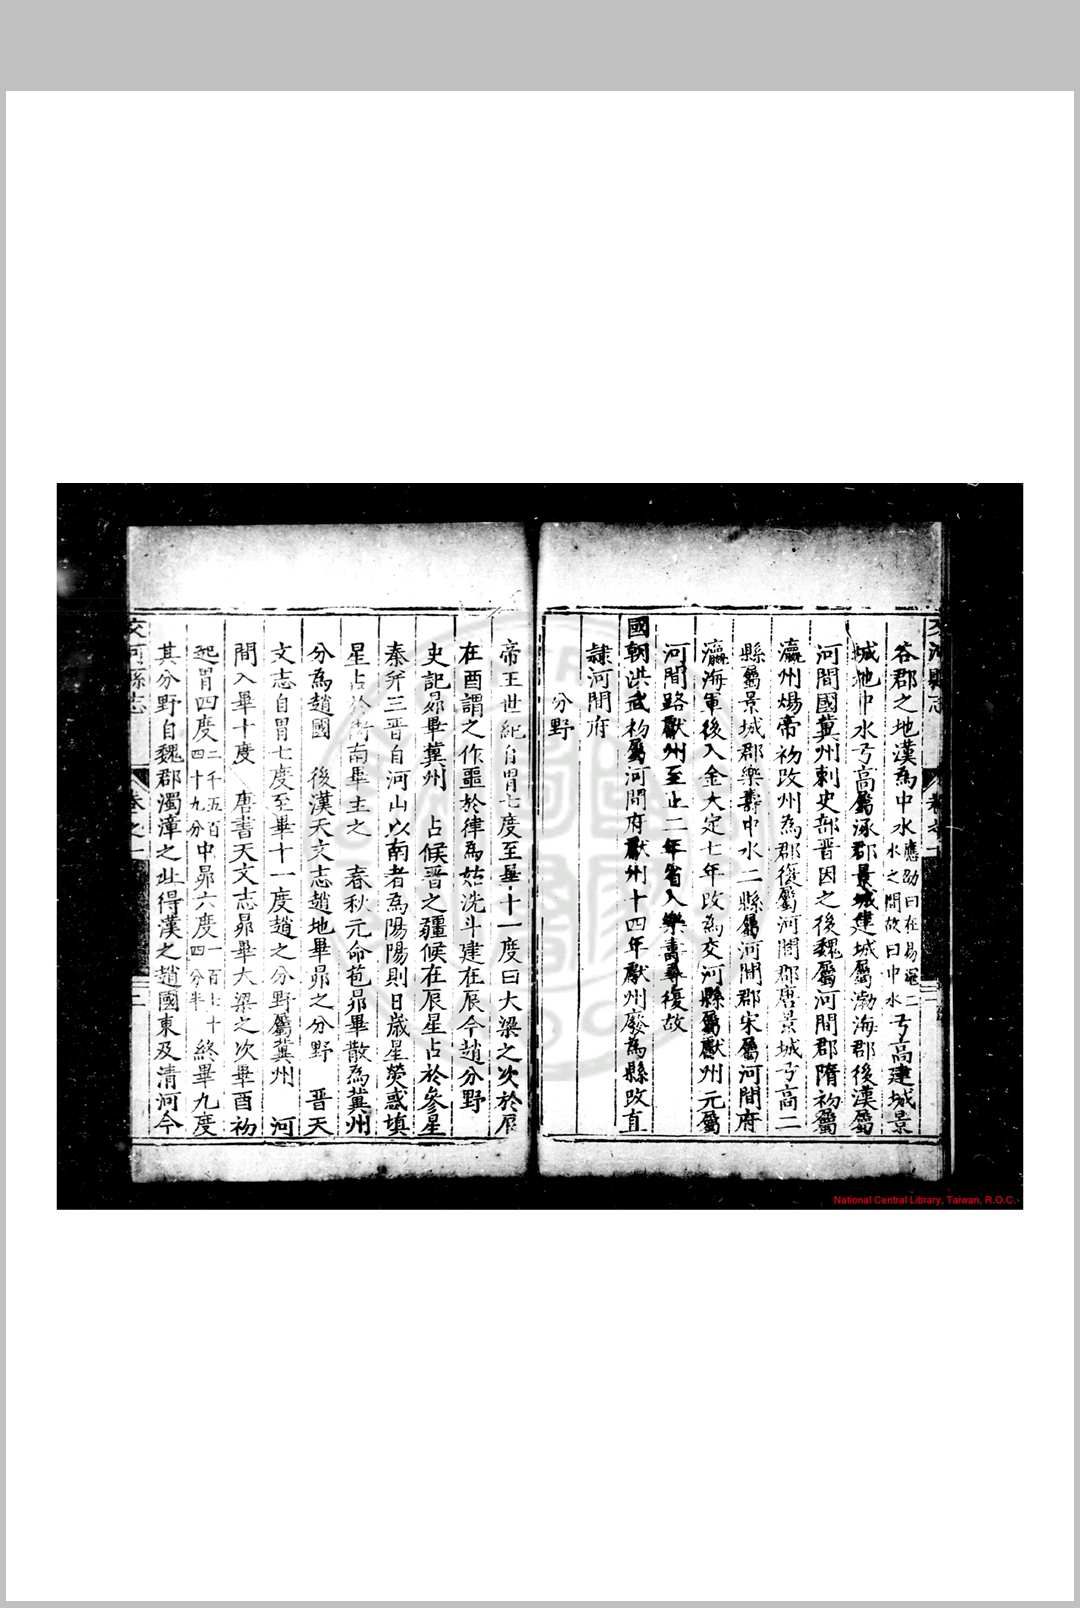 谷郡之地漢為中水應劭曰在易滱二水之間故曰中水弓高建城景
城地中水弓高屬涿郡景城建城屬渤海郡後漢屬
河間國冀州刺史部晋因之後魏屬河間郡隋初屬
瀛州煬帝初改州為郡復屬河間郡唐景城弓高二
縣屬景城郡樂壽中水二縣屬河間郡宋屬河間府
瀛海軍後入金大定七年改為交河縣屬獻州元屬
河間路獻州至正二年省入樂壽尋復故
國朝洪武初屬河間府獻州十四年獻州廢為縣改直
隸河間府
分野
帝王世紀自胃七度至畢十一度曰大梁之次於辰
在酉謂之作噩於律為姑洗斗建在辰今趙分野
史記昴畢冀州 占候晋之疆候在辰星占於參星
秦并三晋自河山以南者為陽陽則日歲星熒惑填
星占於街南畢主之 春秋元命苞昴畢散為冀州
分為趙國 後漢天文志趙地畢昴之分野 晋天
文志自胃七度至畢十一度趙之分野屬冀州 河
間入畢十度 唐書天文志昴畢大梁之次畢酉初
起胃四度二千五百四十九分中昴六度一百七十四分半終畢九度
其分野自魏郡濁漳之北得漢之趙國東及清河今
交河縣志 卷之一 二